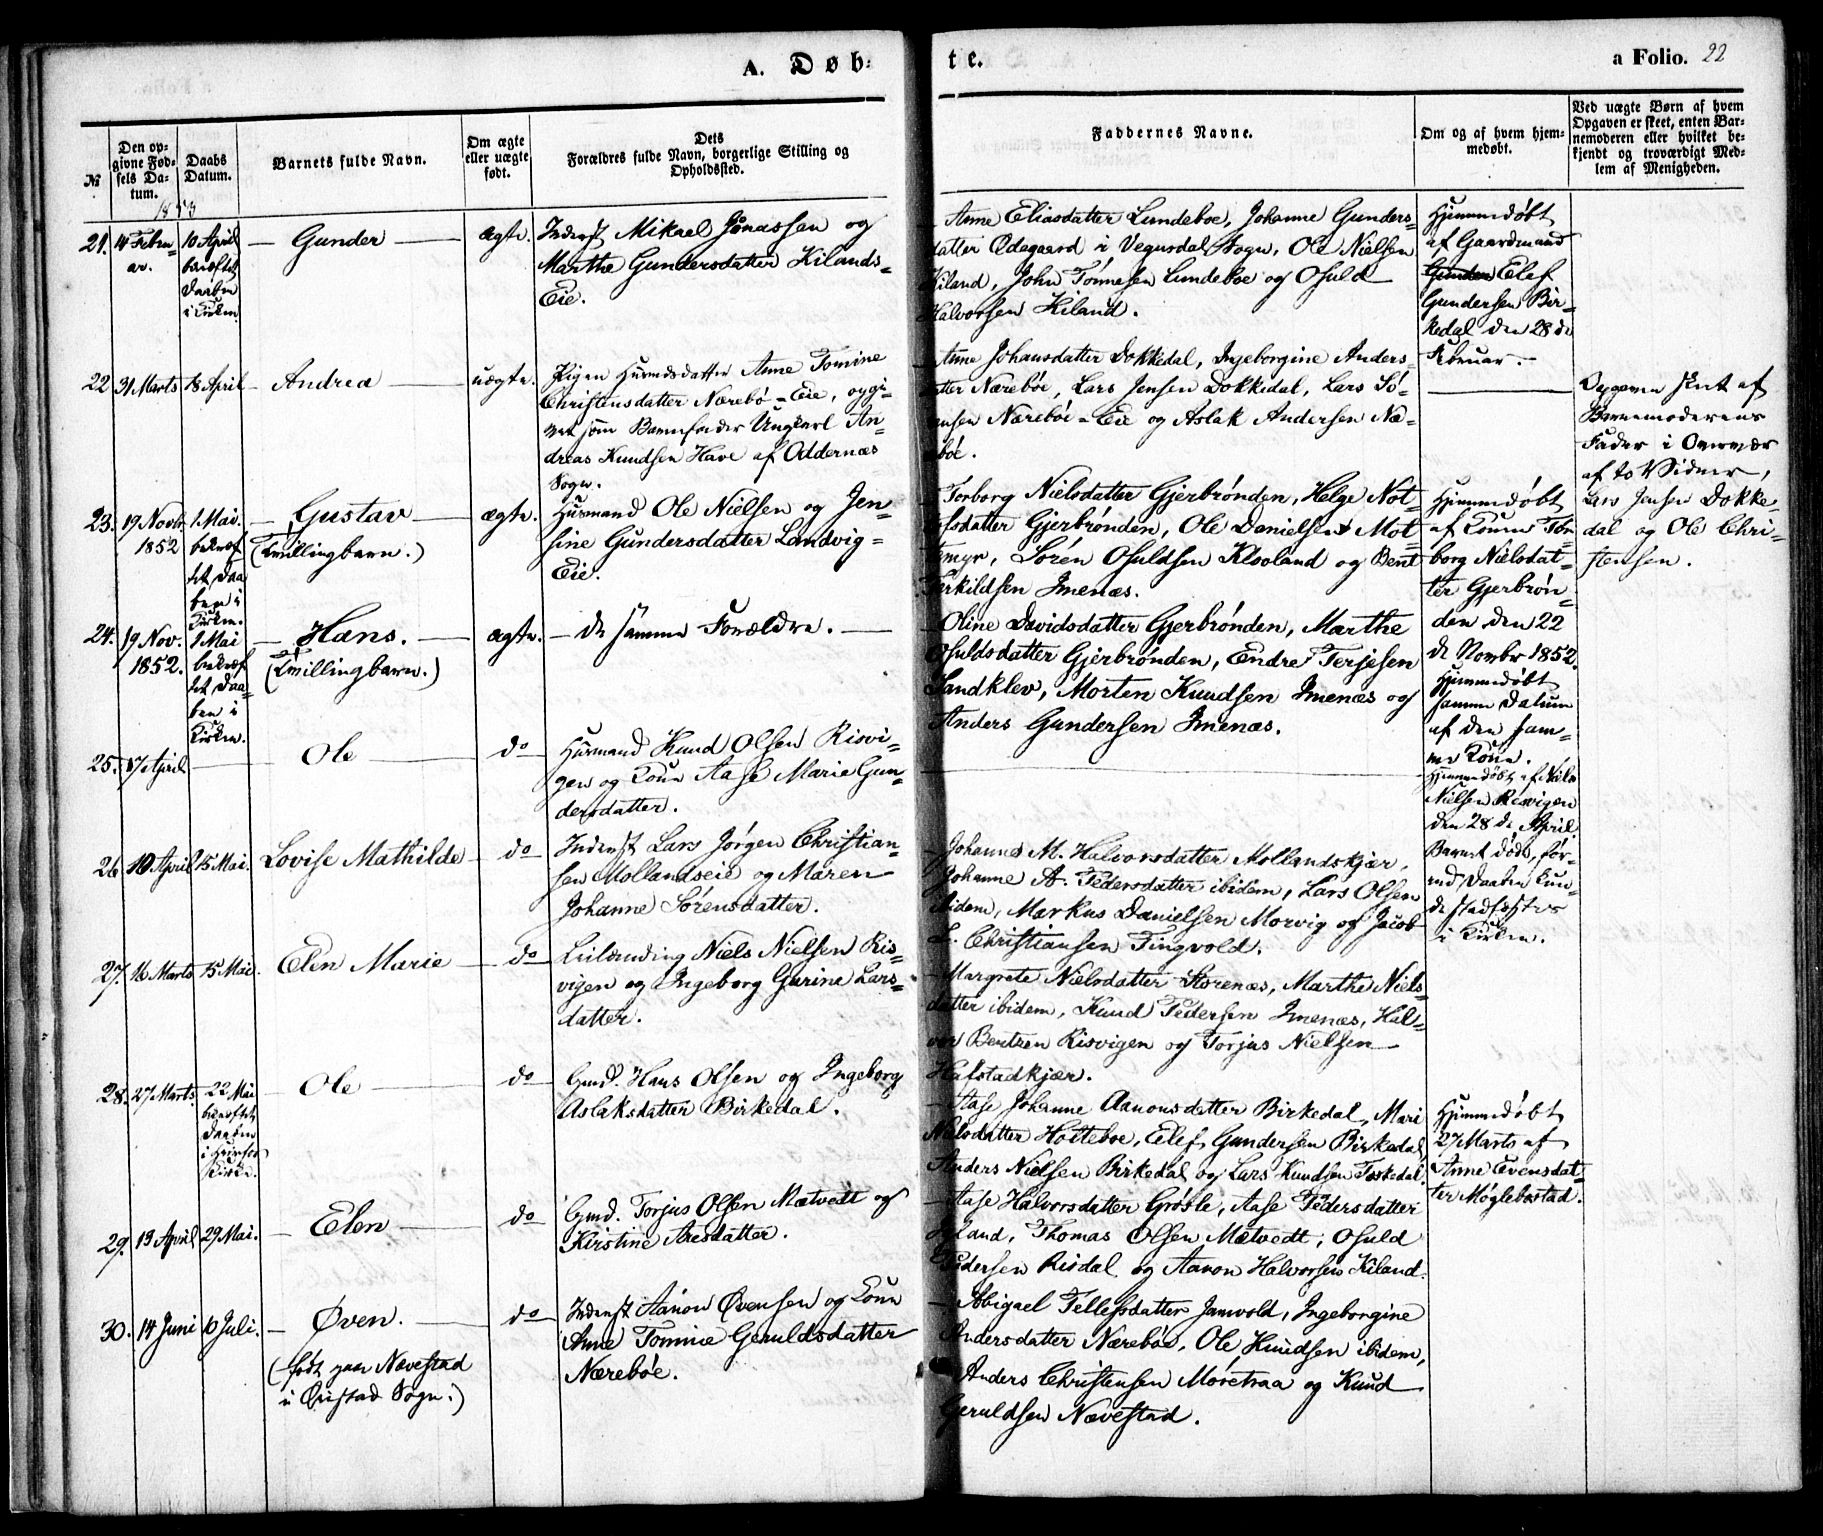 A. Døb-
te.
a Folio. 22
№
Den op-
givne Fød-
sels Da-
tum.
Daabs
Datum.
Barnets fulde Navn.
Om ægte
eller uægte
født.
Dets
Forældres fulde Navn, borgerlige Stilling og
Opholdssted.
Faddernes Navne.
Om og af hvem hjem-
medøbt.
Ved uægte Børn af hvem
Opgaven er skeet, enten Bar-
nemoderen eller hvilket be-
kjendt og troværdigt Med-
lem af Menigheden.
1853
21. 14 Febru-
ar.
10 April
bekræftet
Daaben
i Kirken
Gunder
ægte.
Inderst Mikael Jonassen og
Marthe Gundersdatter Kilands-
Eie.
Anne Eliasdatter Lundeboe, Johanne Gunders-
datter Ødegaard i Vegusdal Sogn, Ole Nielsen
Kiland, John Tønnesen Lundeboe og Osuld
Halvorsen Kiland.
Hjemmedøbt
af Gaardmand
Gunder Elef
Gundersen Bir-
kedal den 28de
Februar.
22 31 Marts 18 April
Andrea
uægte.
Pigen Huusmdsdatter Anne Tomine
Christensdatter Nærebö-Eie, opgi-
vet som Barnefader Ungkarl An-
dreas Knudsen Have af Oddernæs
Sogn.
Anne Johansdatter Dokkedal, Ingeborgine Anders-
datter Nærebøe, Lars Jensen Dokkedal, Lars Sö-
rensen Nærebøe-Eie og Aslak Andersen Næ-
rebøe.
Opgaven skeet af
Barnemoderens
Fader i Overvær
af to Vidner,
Lars Jensen Dokke-
dal og Ole Chri-
stensen.
23. 19 Novb.
1852
1 Mai.
bekræf-
tet Daa
ben i
Kirken.
Gustav
(Tvillingbarn.)
ægte.
Huusmand Ole Nielsen og Jen-
sine Gundersdatter Landvig-
Eie.
Torborg Nielsdatter Gjerbrønden, Helge Not-
tofsdatter Gjerbrønden, Ole Danielsen Mot-
temyr, Søren Osuldsen Klooland og Bent
Terkildsen Imenæs.
Hjemmedøbt
af Konen Tor-
borg Nielsdat-
ter Gjerbrøn-
den den 22
de Novbr 1852.
24. 19 Nov.
1852.
1 Mai
bekræf
tet Daa-
ben i
Kirken.
Hans.
(Tvillingbarn.)
ægte.
de samme Forældre.
Oline Davidsdatter Gjerbrønden, Marthe
Osuldsdatter Gjerbrønden, Endre Terjesen
Sandklev, Morten Knudsen Imenæs og
Anders Gundersen Imenæs.
Hjemmedøbt
samme Datum
af den sam-
me Kone.
25. 17 April
Ole
do
Huusmand Knud Olsen Risvi-
gen og Kone Aase Marie Gun-
dersdatter.
Hjemmedøbt af Niels
Nielsen Risvigen
den 28de April.
Barnet døde, før-
end Daaben kun-
de stadfæstes
i Kirken.
26. 10 April 15 Mai.
Lovise Mathilde
do
Inderst Lars Jørgen Christian-
sen Mollandseie og Maren
Johanne Sørensdatter.
Johanne M. Halvorsdatter Mollandskjær,
Johanne A. Pedersdatter ibidem, Lars Olsen
ibidem, Markus Danielsen Morvig og Jacob
L. Christiansen Tingvold.
27. 16 Marts 15 Mai.
Elen Marie
do
Leilænding Niels Nielsen Ris-
vigen og Ingeborg Gurine Lars-
datter.
Margrete Nielsdatter Storenæs, Marthe Niels-
datter ibidem, Knud Pedersen Imenæs, Hal-
vor Bentzen Risvigen og Torjus Nielsen
Hafstadkjær.
28. 27 Marts. 22 Mai
bekræftet
Daaben
Kirke.
Ole
do
Gmd. Hans Olsen og Ingeborg
Aslaksdatter Birkedal.
Aase Johanne Aanonsdatter Birkedal, Mari
Nielsdatter Holteboe, Elef Gundersen Birkedal,
Anders Nielsen Birkedal og Lars Knudsen Toskedal.
Hjemmedøbt
27 Marts af
Anne Evensdat-
ter Møglebostad.
29. 13 April 29 Mai.
Elen
do
Gmd. Torjus Olsen Mætvedt og
Kirstine Aresdatter.
Aase Halvorsdatter Grøsle, Aase Pedersdatter
Thomas Olsen Mætvedt, Osuld
Pedersen Risdal og Aanon Halvorsen Kiland.
30. 14 Juni 10 Juli.
Øven.
(født paa Nævestad
i Øiestad Sogn.)
do
Inderst Aanon Øvensen og Kone
Anne Tomine Geruldsdatter
Nærebøe.
Abigael Tellefsdatter Jamvold, Ingeborgine
Andersdatter Nærebøe, Ole Knudsen ibidem,
Anders Christensen Møretraa og Knud
Geruldsen Nævestad.